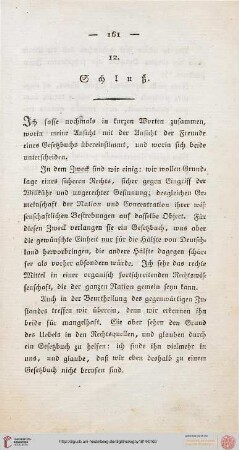 — 161 —
12.
Schluß.
Ich fasse nochmals in kurzen Worten zusammen,
worin meine Ansicht mit der Ansicht der Freunde
eines Gesetzbuchs übereinstimmt, und worin sich beide
unterscheiden.
In dem Zweck sind wir einig: wir wollen Grund-
lage eines sicheren Rechts, sicher gegen Eingriff der
Willkühr und ungerechter Gesinnung; desgleichen Ge-
meinschaft der Nation und Concentration ihrer wis-
senschaftlichen Bestrebungen auf dasselbe Object. Für
diesen Zweck verlangen sie ein Gesetzbuch, was aber
die gewünschte Einheit nur für die Hälfte von Deutsch-
land hervorbringen, die andere Hälfte dagegen schär-
fer als vorher absondern würde. Ich sehe das rechte
Mittel in einer organisch fortschreitenden Rechtswis-
senschaft, die der ganzen Nation gemein seyn kann.
Auch in der Beurtheilung des gegenwärtigen Zu-
standes treffen wir überein, denn wir erkennen ihn
beide für mangelhaft. Sie aber sehen den Grund
des Uebels in den Rechtsquellen, und glauben durch
ein Gesetzbuch zu helfen: ich finde ihn vielmehr in
uns, und glaube, daß wir eben deshalb zu einem
Gesetzbuch nicht berufen sind.